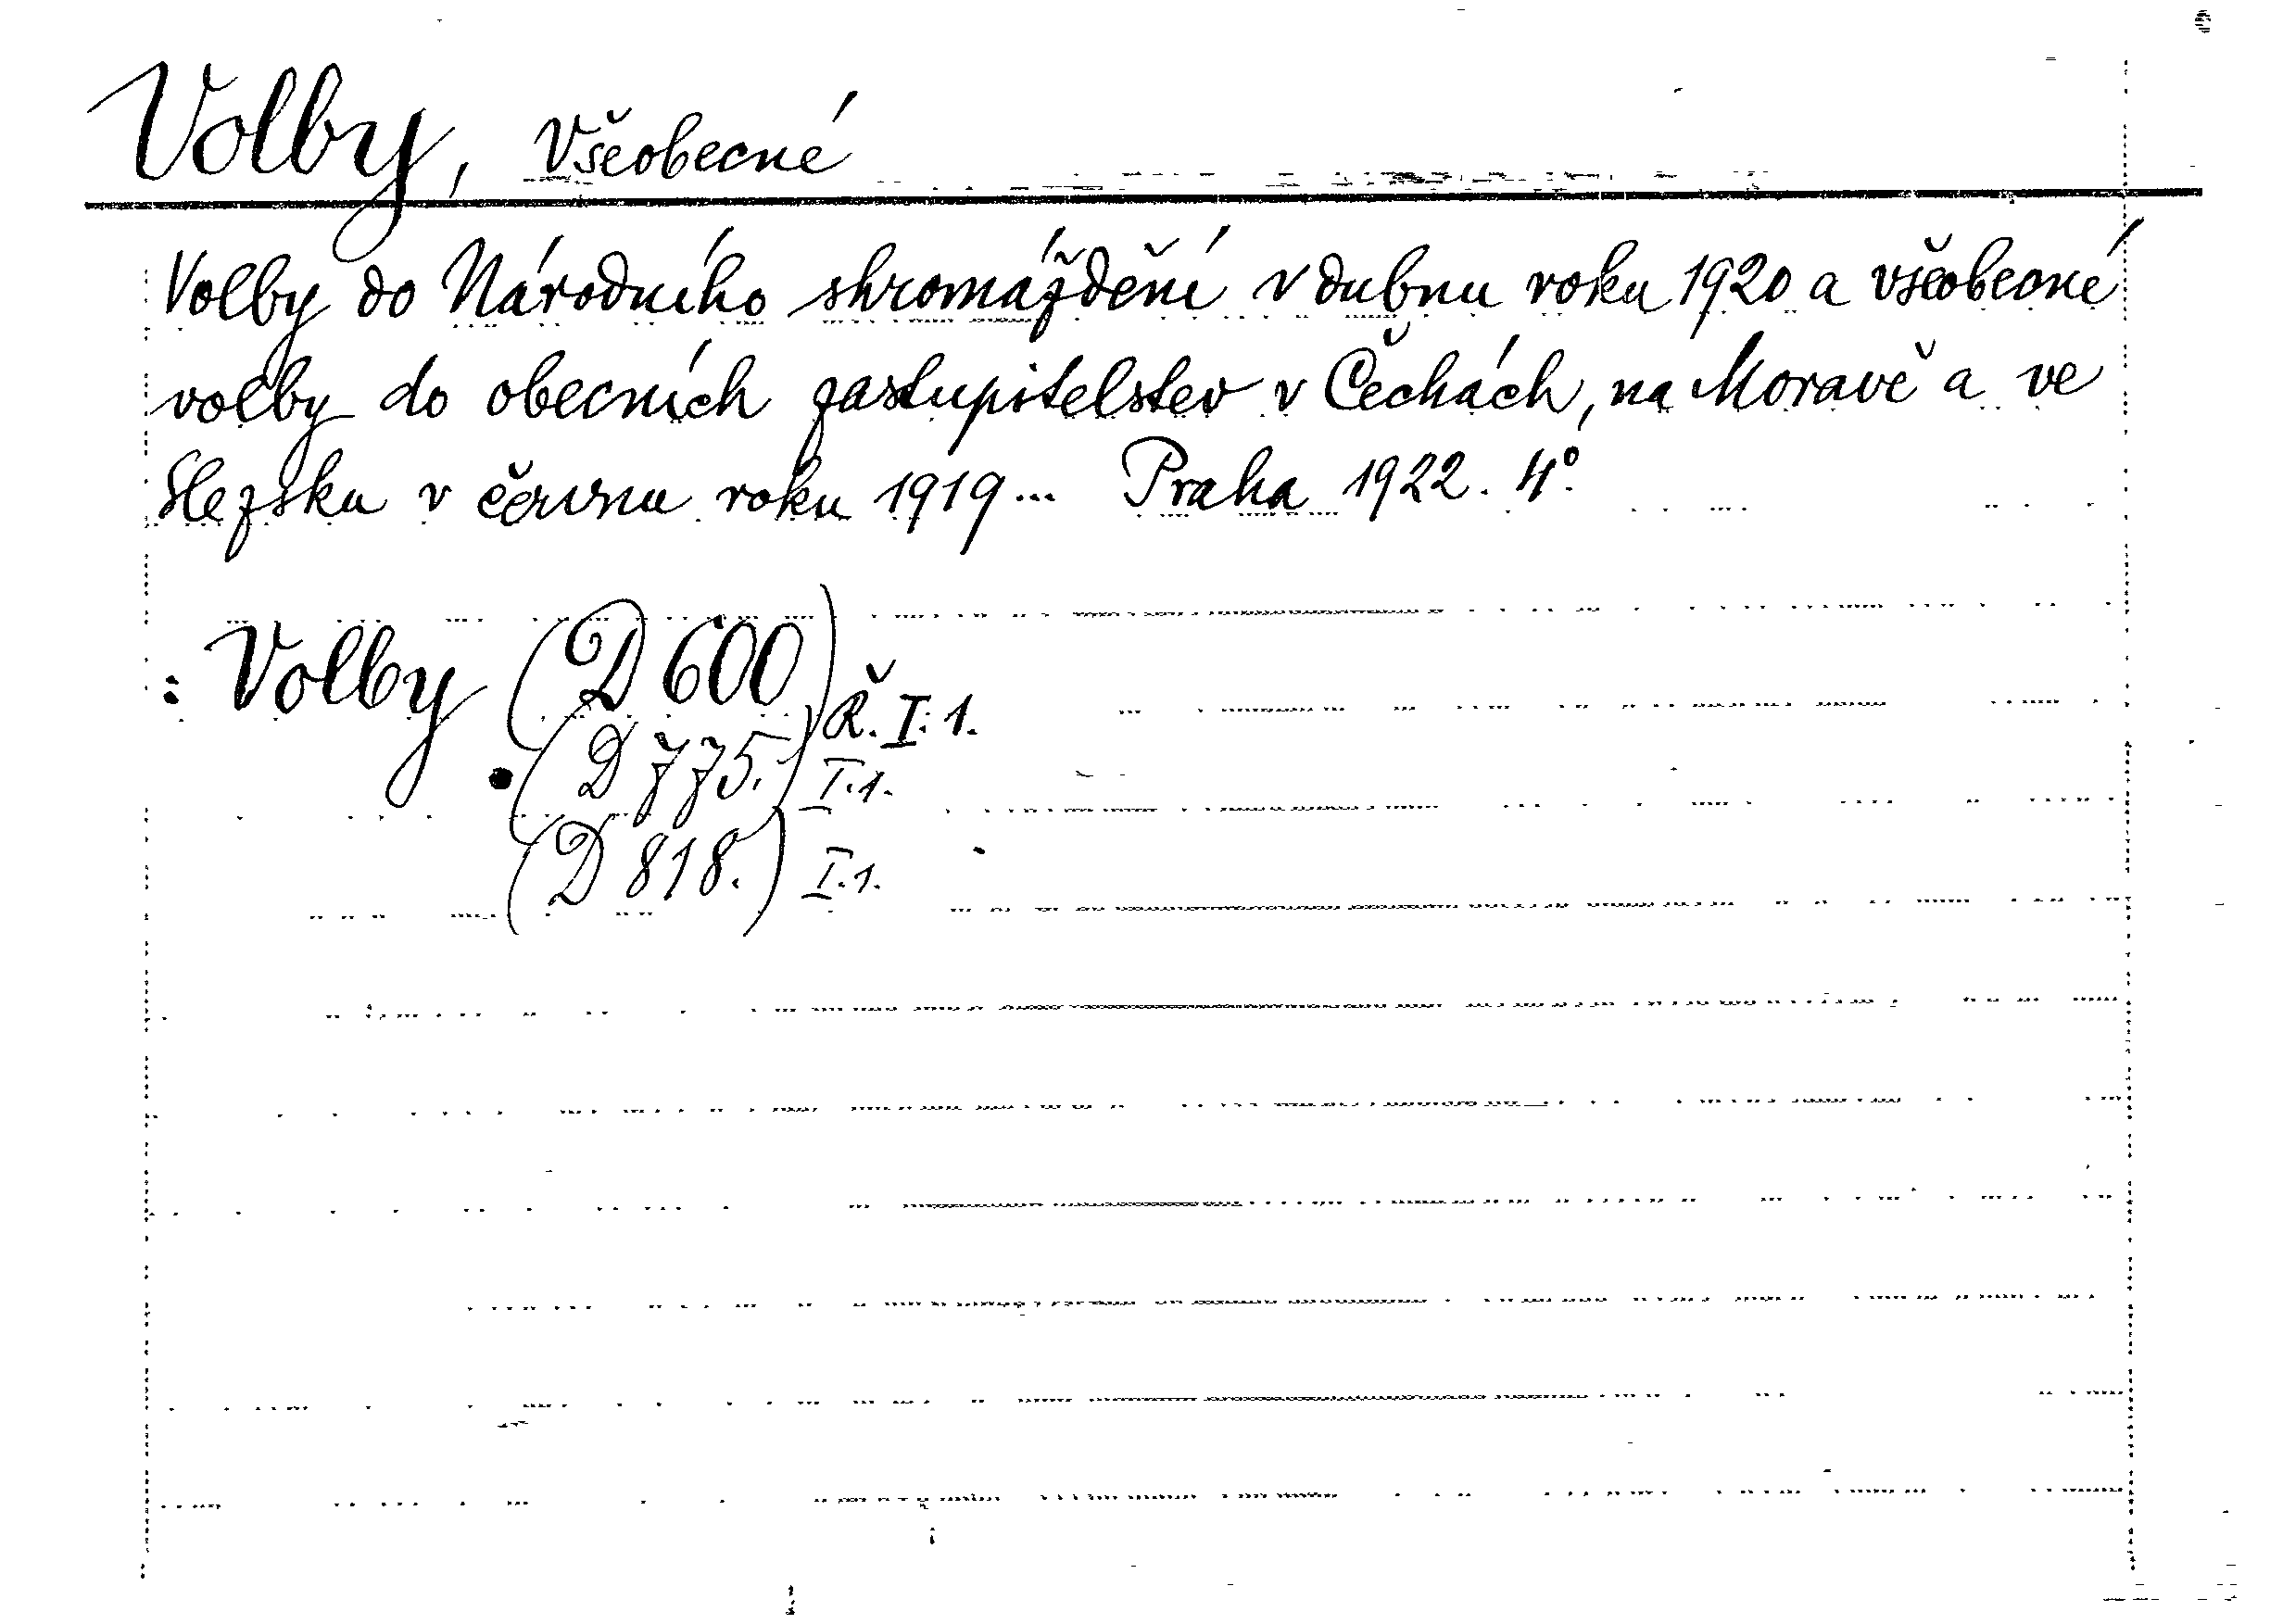 Volby, Všeobecné
Volby do Národního shromáždění v dubnu roku 1920 a všeobecné
volby do obecních zastupitelstev v Čechách, na Moravě a ve
Slezsku v červnu roku 1919... Praha 1922. 4°.
: Volby (D 600) Ř. I. 1.
(D 775.) I. 1.
(D 818.) I. 1.